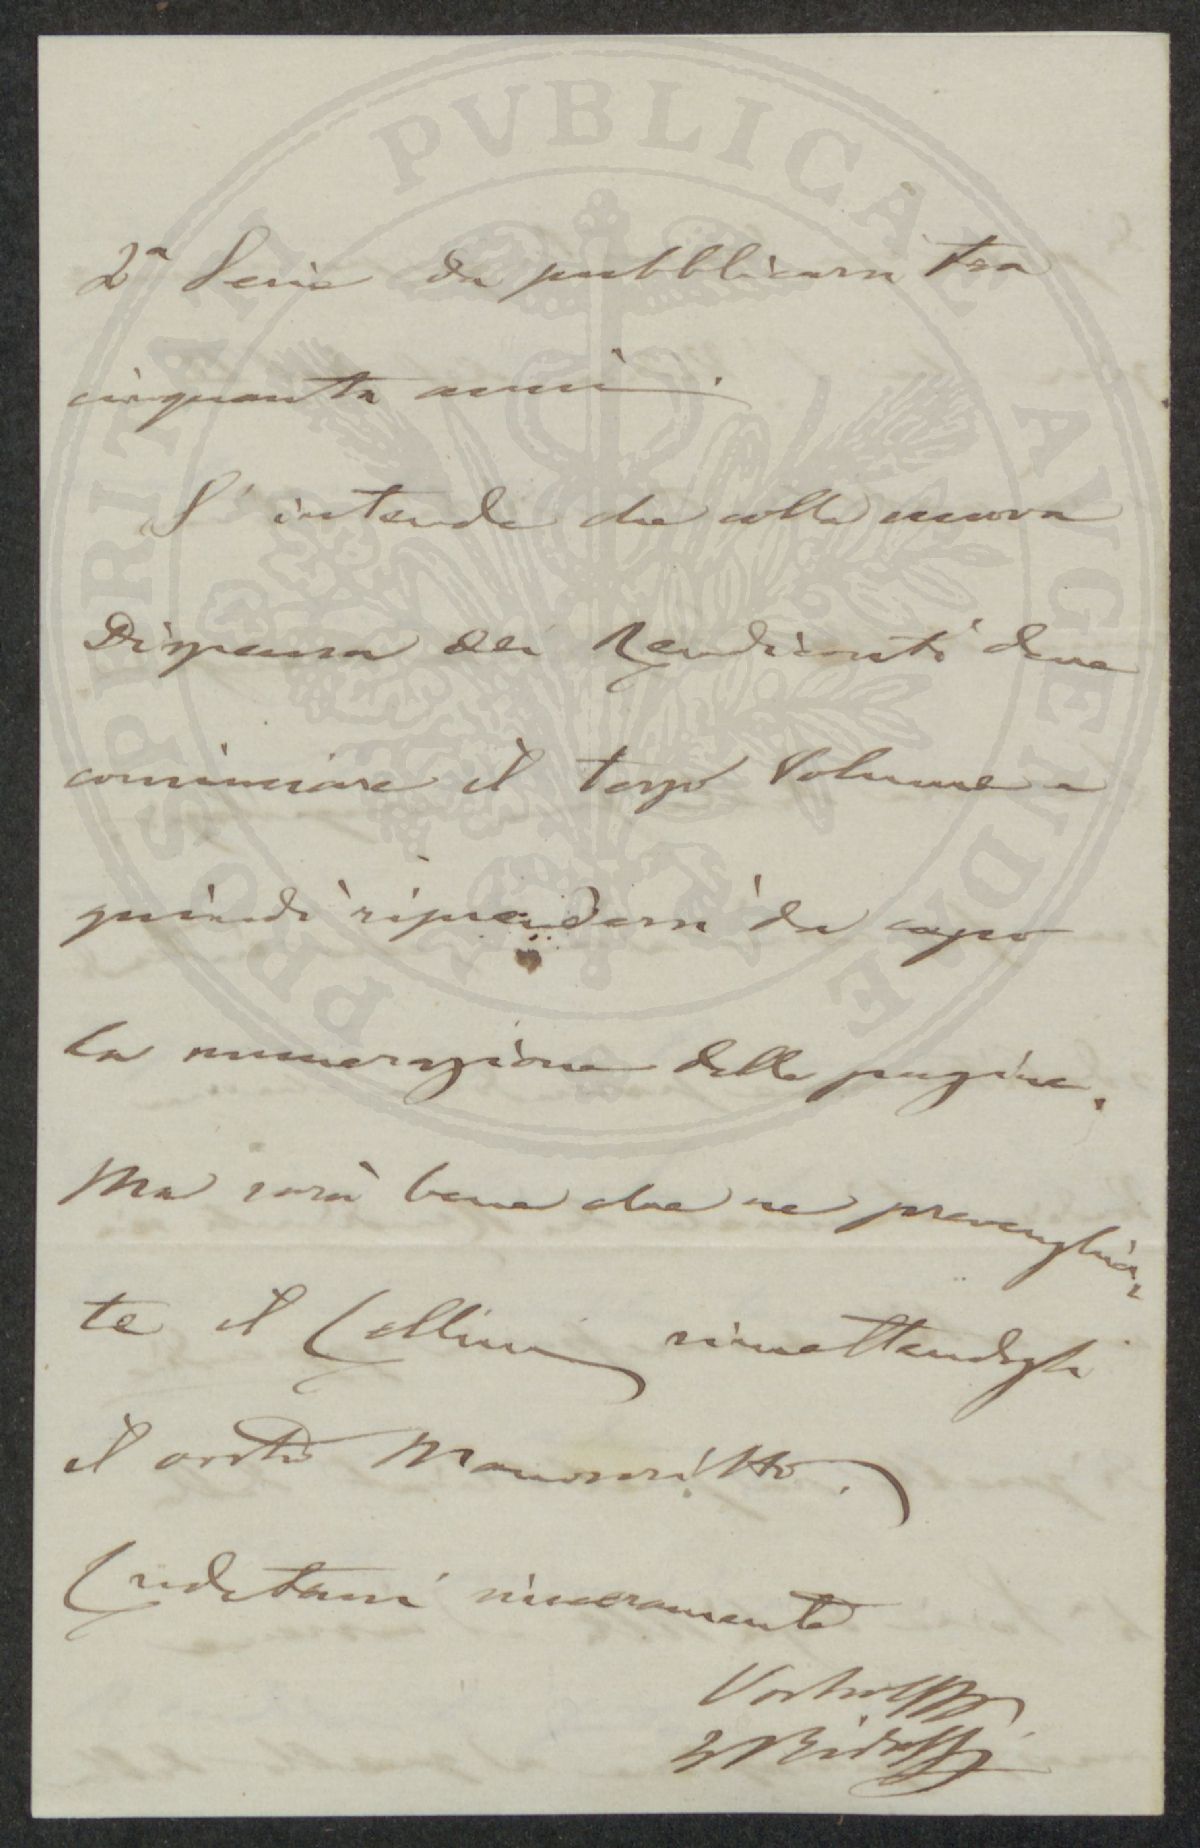 PROSPERITATI PVBLICAE AVGENDAE
2ª Serie da pubblicarsi tra
cinquanta anni.
S'intende che colla nuova
Dispensa dei Rendiconti deve
cominciare il terzo Volume e
quindi riprendersi da capo
la numerazione delle pagine.
Ma sarà bene che ne prevenghia-
te il Cellini rimettendogli
il Manoscritto.
Credetemi sinceramente
Vostro
Ridolfi